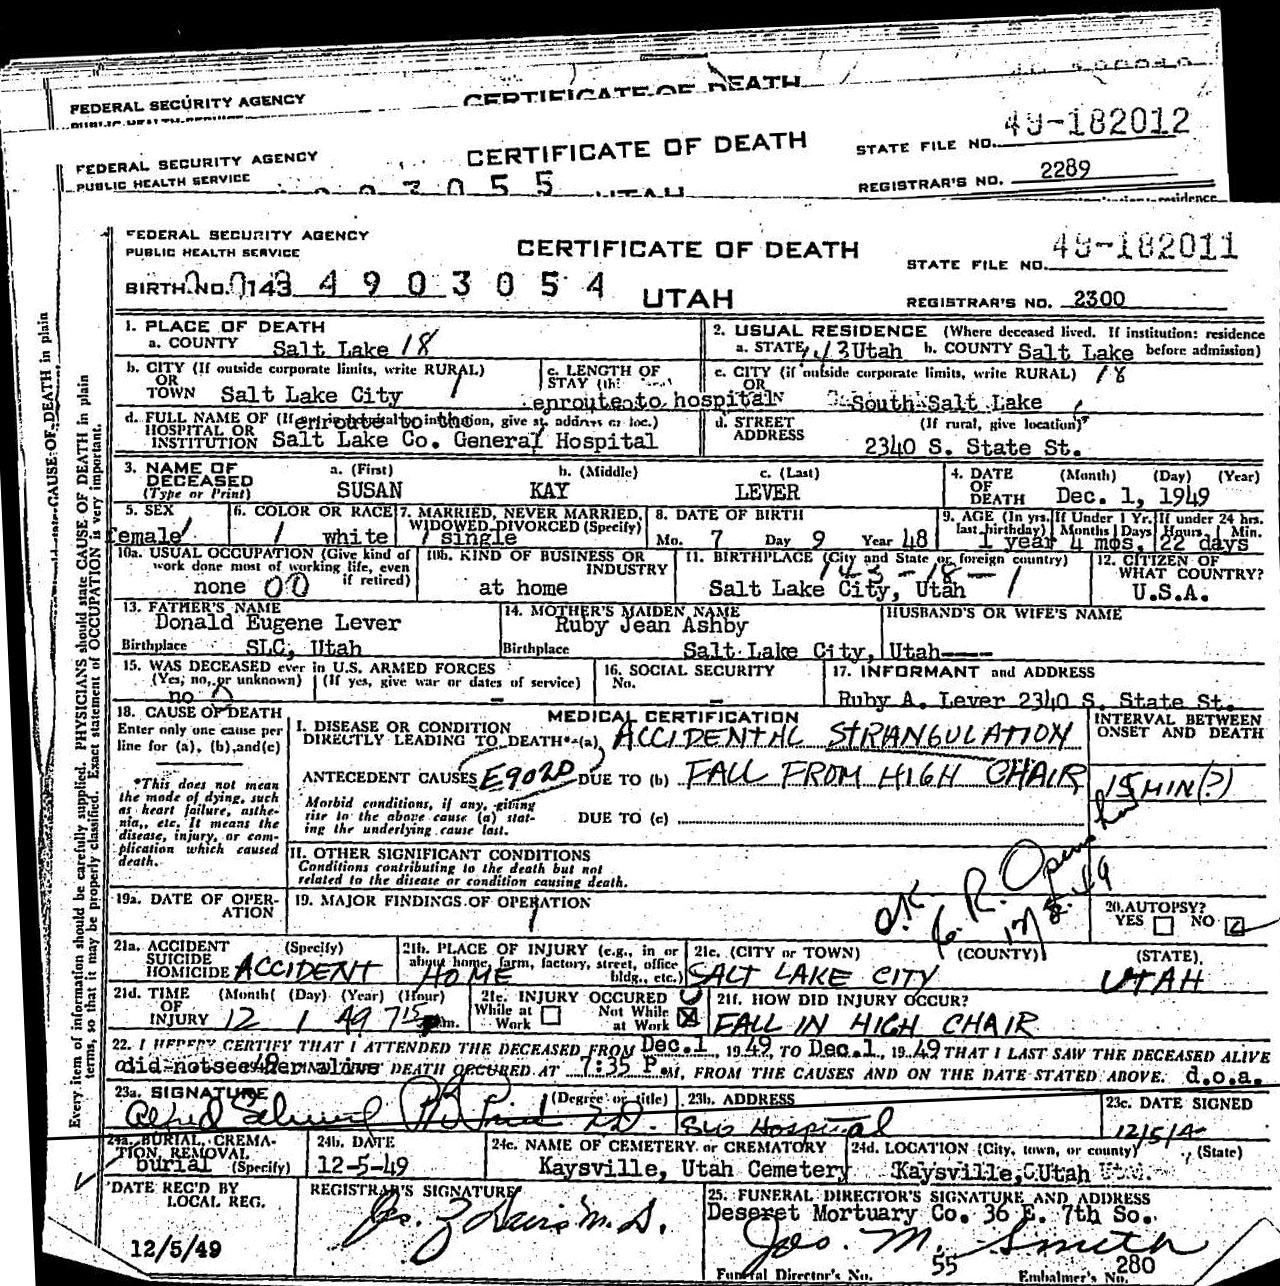 FEDERAL SECURITY AGENCY CERTIFICATE OF DEATH
FEDERAL SECURITY AGENCY CERTIFICATE OF DEATH STATE FILE NO. 49-182012
PUBLIC HEALTH SERVICE 03055 UTAH REGISTRAR'S NO. 2289
FEDERAL SECURITY AGENCY CERTIFICATE OF DEATH 49-182011
PUBLIC HEALTH SERVICE STATE FILE NO.
BIRTH NO. 0143 4903054 UTAH REGISTRAR'S NO. 2300
Every item of information should be carefully supplied. PHYSICIANS should state CAUSE OF DEATH in plain
terms, so that it may be properly classified. Exact statement of OCCUPATION is very important.
1. PLACE OF DEATH 2. USUAL RESIDENCE (Where deceased lived. If institution: residence
a. COUNTY Salt Lake 18 a. STATE 143 Utah b. COUNTY Salt Lake before admission)
b. CITY (If outside corporate limits, write RURAL) c. LENGTH OF c. CITY (if outside corporate limits, write RURAL) 18
OR STAY OR
TOWN Salt Lake City enroute to hospital South Salt Lake
d. FULL NAME OF enroute to the d. STREET (If rural, give location)
HOSPITAL OR ADDRESS
INSTITUTION Salt Lake Co. General Hospital 2340 S. State St.
3. NAME OF a. (First) b. (Middle) c. (Last) 4. DATE (Month) (Day) (Year)
DECEASED OF
(Type or Print) SUSAN KAY LEVER DEATH Dec. 1, 1949
5. SEX 6. COLOR OR RACE 7. MARRIED, NEVER MARRIED, 8. DATE OF BIRTH 9. AGE (In yrs. If Under 1 Yr. If under 24 hrs.
WIDOWED DIVORCED (Specify) last birthday) Months Days Hours Min.
female white single Mo. 7 Day 9 Year 48 1 year 4 mos. 22 days
10a. USUAL OCCUPATION (Give kind of 10b. KIND OF BUSINESS OR 11. BIRTHPLACE (City and State or foreign country) 12. CITIZEN OF
work done most of working life, even INDUSTRY 143-18-1 WHAT COUNTRY?
none 00 if retired) at home Salt Lake City, Utah U.S.A.
13. FATHER'S NAME 14. MOTHER'S MAIDEN NAME HUSBAND'S OR WIFE'S NAME
Donald Eugene Lever Ruby Jean Ashby
Birthplace SLC, Utah Birthplace Salt Lake City, Utah----
15. WAS DECEASED ever in U.S. ARMED FORCES 16. SOCIAL SECURITY 17. INFORMANT and ADDRESS
(Yes, no, or unknown) (If yes, give war or dates of service) No.
no - - Ruby A. Lever 2340 S. State St.
18. CAUSE OF DEATH MEDICAL CERTIFICATION INTERVAL BETWEEN
Enter only one cause per I. DISEASE OR CONDITION ONSET AND DEATH
line for (a), (b), and (c) DIRECTLY LEADING TO DEATH*(a) ACCIDENTAL STRANGULATION
ANTECEDENT CAUSES E902D DUE TO (b) FALL FROM HIGH CHAIR 15 MIN(?)
*This does not mean Morbid conditions, if any, giving
the mode of dying, such rise to the above cause (a) stat- DUE TO (c)
as heart failure, asthe- ing the underlying cause last.
nia, etc. It means the
disease, injury, or com-
plication which caused II. OTHER SIGNIFICANT CONDITIONS
death. Conditions contributing to the death but not
related to the disease or condition causing death.
OK
19a. DATE OF OPER- 19. MAJOR FINDINGS OF OPERATION 20. AUTOPSY?
ATION YES NO
21a. ACCIDENT (Specify) 21b. PLACE OF INJURY (e.g., in or 21c. (CITY or TOWN) (COUNTY) (STATE)
SUICIDE about home, farm, factory, street, office
HOMICIDE ACCIDENT HOME bldg., etc.) SALT LAKE CITY UTAH
21d. TIME (Month) (Day) (Year) (Hour) 21e. INJURY OCCURED 21f. HOW DID INJURY OCCUR?
OF While at Not While
INJURY 12 1 49 7 15 m. Work at Work FALL IN HIGH CHAIR
22. I HEREBY CERTIFY THAT I ATTENDED THE DECEASED FROM Dec.1, 1949 TO Dec.1, 1949 THAT I LAST SAW THE DECEASED ALIVE
did not see her alive DEATH OCCURED AT 7:35 P.M, FROM THE CAUSES AND ON THE DATE STATED ABOVE. d.o.a.
23a. SIGNATURE (Degree or title) 23b. ADDRESS 23c. DATE SIGNED
Hospital 12/5/4
24a. BURIAL, CREMA- 24b. DATE 24c. NAME OF CEMETERY or CREMATORY 24d. LOCATION (City, town, or county) (State)
TION, REMOVAL
burial (Specify) 12-5-49 Kaysville, Utah Cemetery Kaysville, Utah
DATE REC'D BY REGISTRAR'S SIGNATURE 25. FUNERAL DIRECTOR'S SIGNATURE AND ADDRESS
LOCAL REG. Deseret Mortuary Co. 36 E. 7th So.
12/5/49 Jos. M. Smith
Funeral Director's No. 55 Embalmer's No. 280